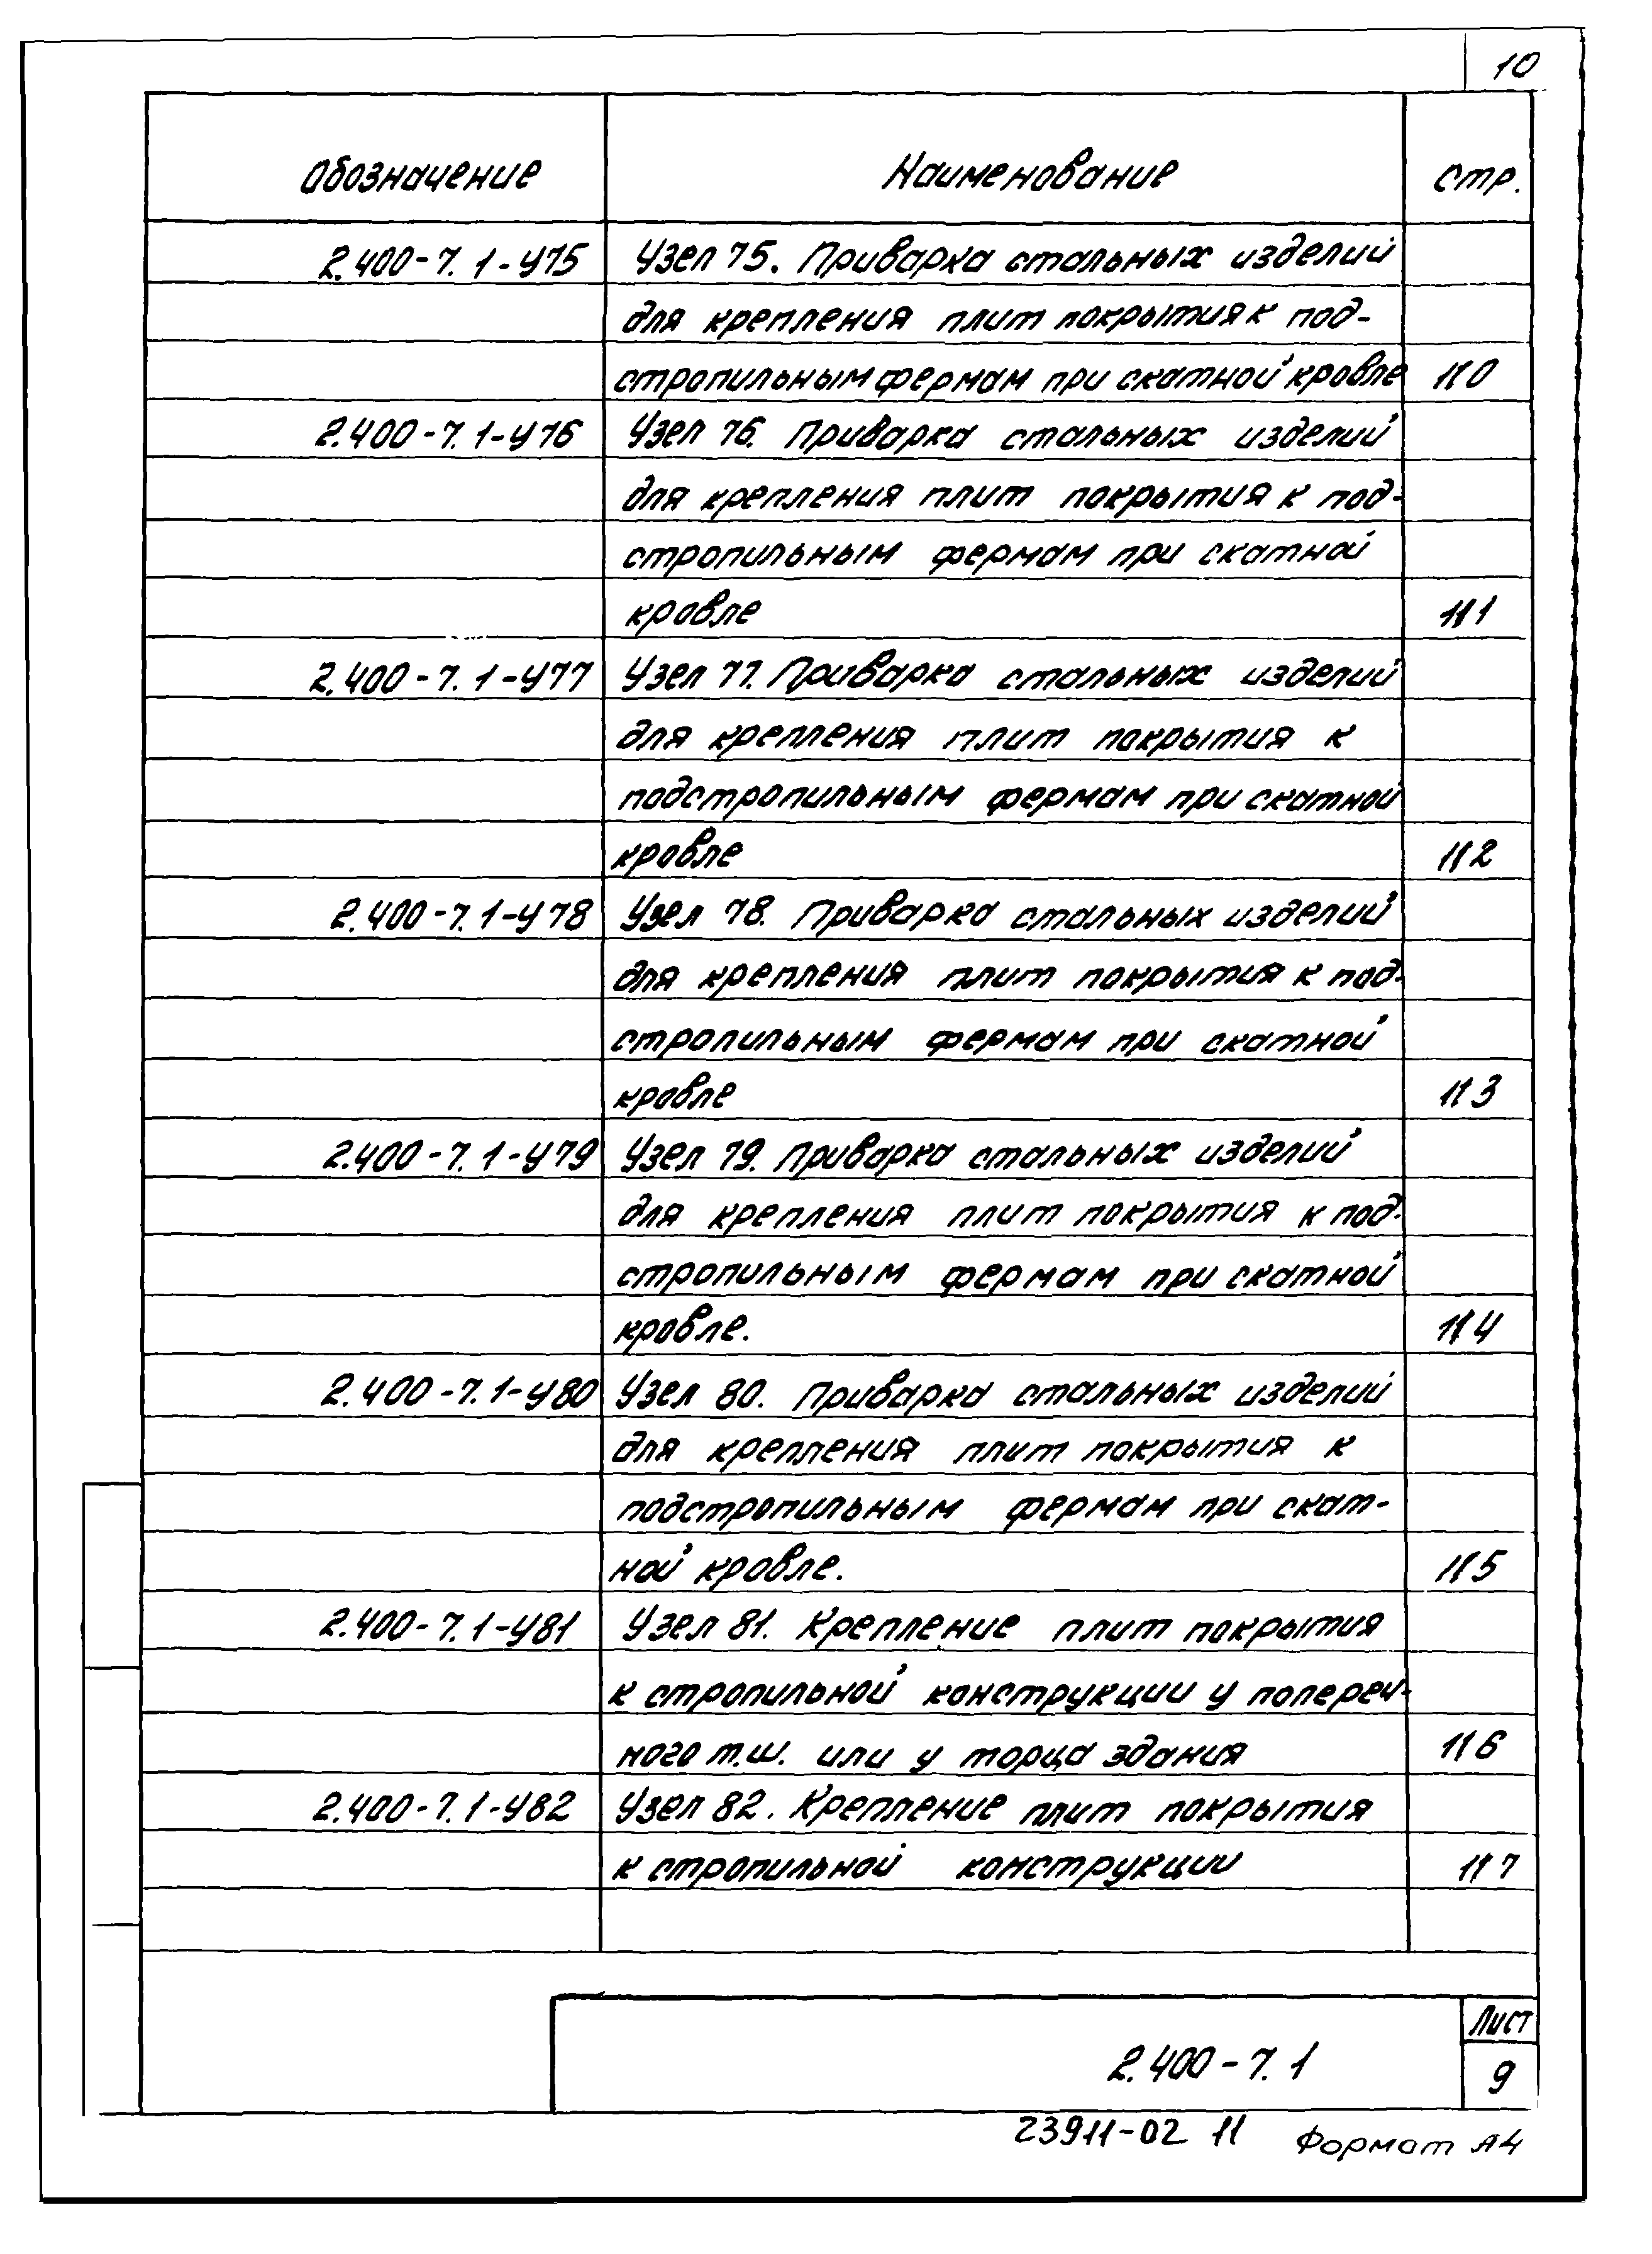 10
Обозначение Наименование Стр.
2.400-7.1-У75 Узел 75. Приварка стальных изделий
для крепления плит покрытия к под-
стропильным фермам при скатной кровле 110
2.400-7.1-У76 Узел 76. Приварка стальных изделий
для крепления плит покрытия к под-
стропильным фермам при скатной
кровле 111
2.400-7.1-У77 Узел 77. Приварка стальных изделий
для крепления плит покрытия к
подстропильным фермам при скатной
кровле 112
2.400-7.1-У78 Узел 78. Приварка стальных изделий
для крепления плит покрытия к под-
стропильным фермам при скатной
кровле 113
2.400-7.1-У79 Узел 79. Приварка стальных изделий
для крепления плит покрытия к под-
стропильным фермам при скатной
кровле. 114
2.400-7.1-У80 Узел 80. Приварка стальных изделий
для крепления плит покрытия к
подстропильным фермам при скат-
ной кровле. 115
2.400-7.1-У81 Узел 81. Крепление плит покрытия
к стропильной конструкции у попереч-
ного т.ш. или у торца здания 116
2.400-7.1-У82 Узел 82. Крепление плит покрытия
к стропильной конструкции 117
2.400-7.1
Лист
9
23911-02 11 Формат А4